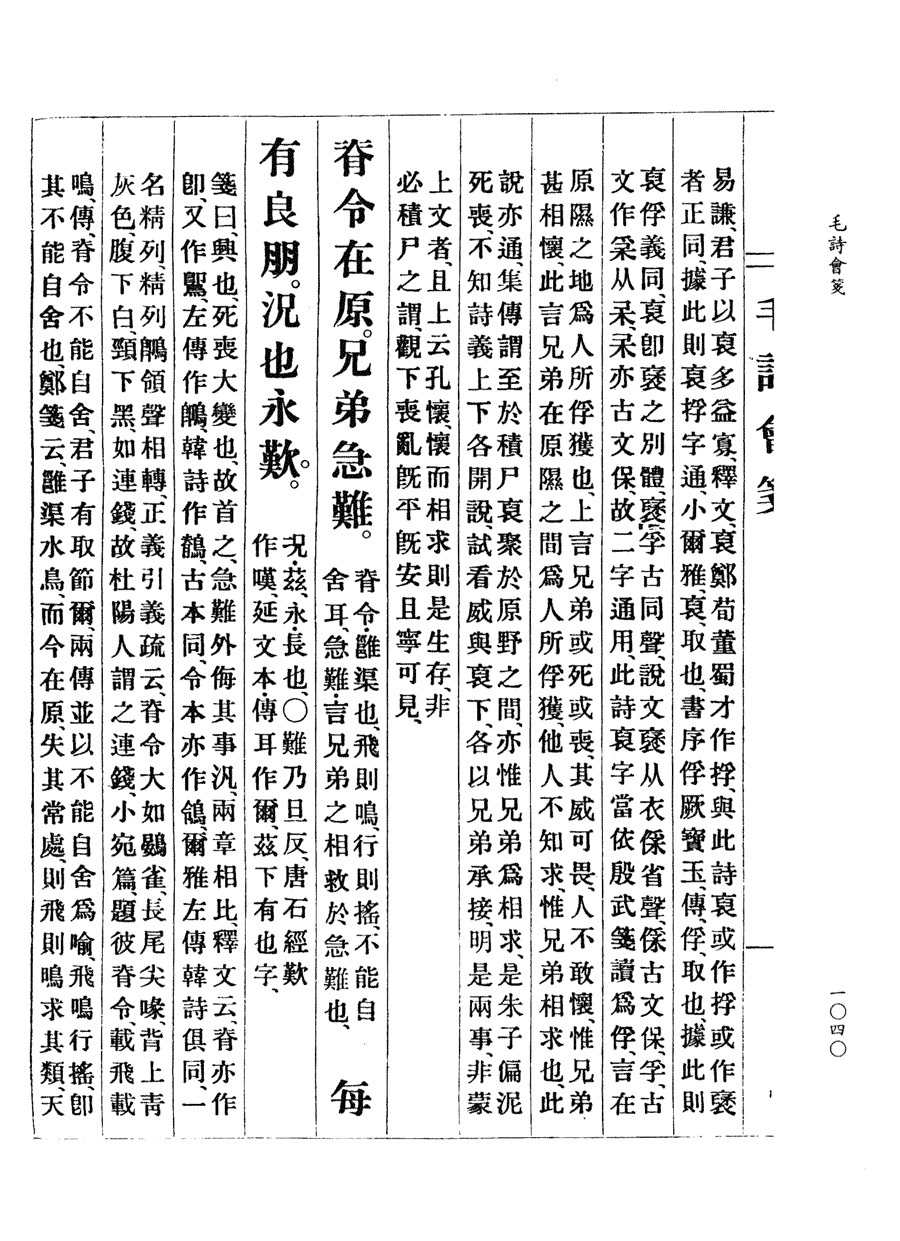 毛詩會箋
一〇四〇
毛詩會箋
易謙、君子以裒多益寡、釋文、裒鄭荀董蜀才作捊、與此詩裒或作捊或作褎
者正同、據此則裒捊字通、小爾雅、裒、取也、書序俘厥寶玉、傳、俘、取也、據此則
裒俘義同、裒卽褎之別體、褎孚古同聲、說文褎从衣保省聲、保古文保、孚、古
文作采从禾、禾亦古文保、故二字通用、此詩裒字當依殷武箋讀爲俘、言在
原隰之地爲人所俘獲也、上言兄弟或死或喪、其威可畏、人不敢懷、惟兄弟
甚相懷、此言兄弟在原隰之間爲人所俘獲、他人不知求、惟兄弟相求也、此
說亦通、集傳謂至於積尸裒聚於原野之間、亦惟兄弟爲相求、是朱子偏泥
死喪、不知詩義上下各開說、試看威與裒下、各以兄弟承接、明是兩事、非蒙
上文者、且上云孔懷、懷而相求則是生存、非
必積尸之謂、觀下喪亂旣平旣安且寧可見、
脊令在原。兄弟急難。
脊令・雝渠也、飛則鳴、行則搖、不能自
舍耳、急難・言兄弟之相救於急難也、
每
有良朋。況也永歎。
況・茲、永・長也、〇難乃旦反、唐石經歎
作嘆、延文本・傳耳作爾、茲下有也字、
箋曰、興也、死喪大變也、故首之、急難外侮其事汎、兩章相比、釋文云、脊亦作
卽、又作鶺、左傳作鶺、韓詩作鶺、古本同、令本亦作鴒、爾雅左傳韓詩俱同、一
名精列、精列鶺領聲相轉、正義引義疏云、脊令大如鷃雀、長尾尖喙、背上靑
灰色、腹下白、頸下黑、如連錢、故杜陽人謂之連錢、小宛篇、題彼脊令、載飛載
鳴、傳、脊令不能自舍、君子有取節爾、兩傳並以不能自舍爲喻、飛鳴行搖、卽
其不能自舍也、鄭箋云、雝渠水鳥、而今在原、失其常處、則飛則鳴求其類、天